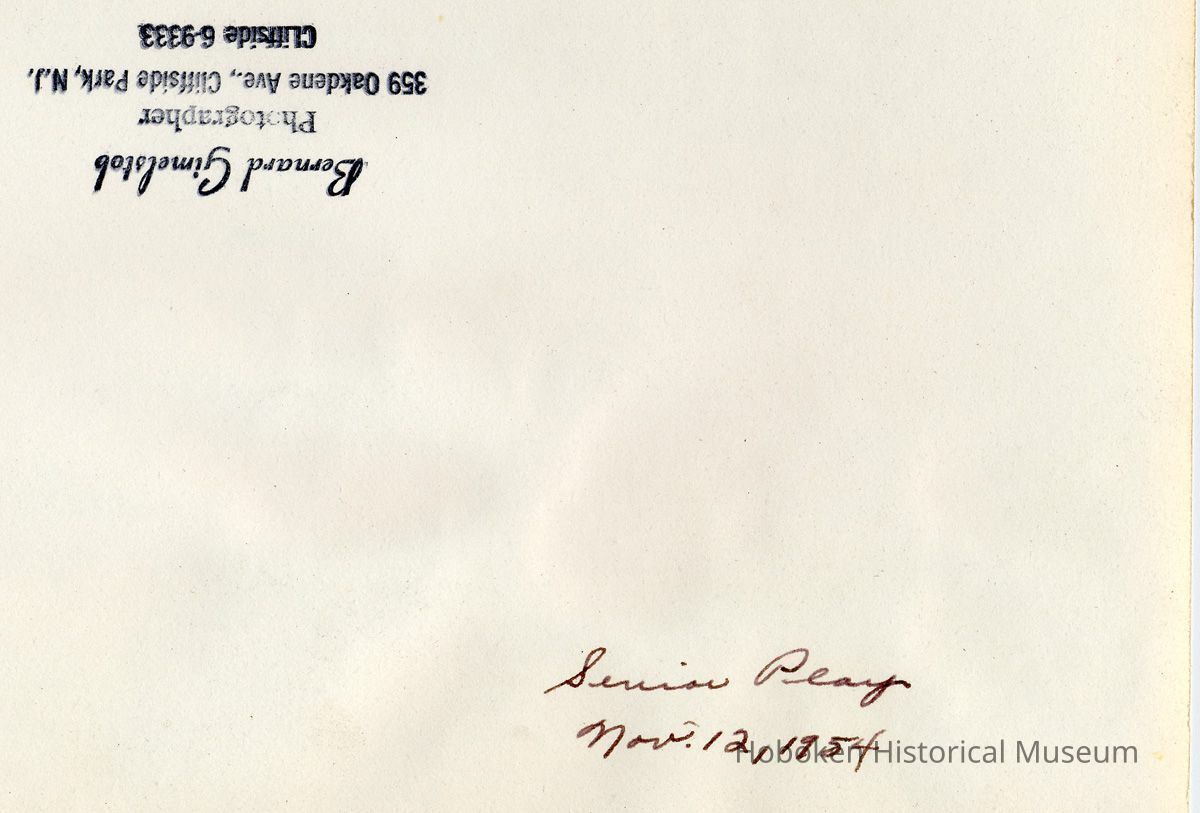 Bernard Gimelstob
Photographer
359 Oakdene Ave., Cliffside Park, N.J.
CLiffside 6-9333
Senior Play
Nov. 12, 1954
Hoboken Historical Museum